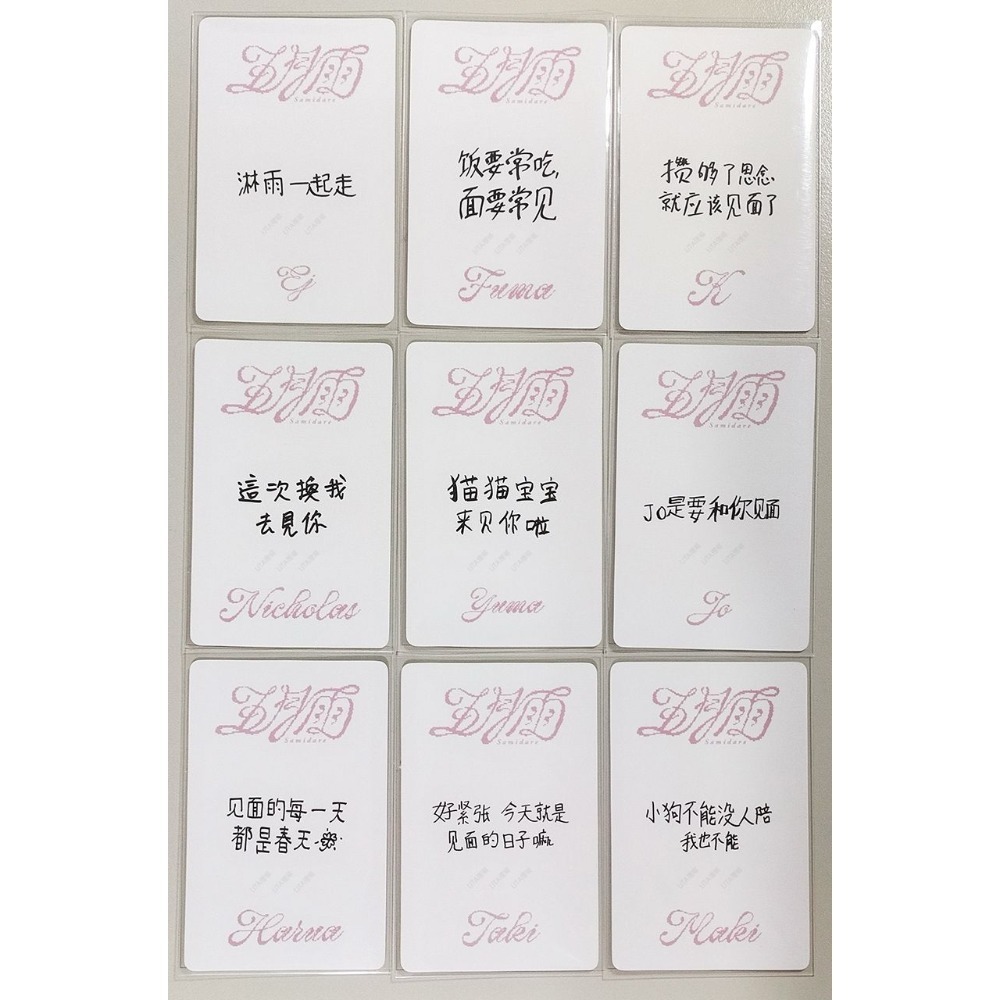 五月雨
Samidare
淋雨一起走
Ej
五月雨
Samidare
饭要常吃,
面要常见
Fuma
五月雨
Samidare
攒够了思念
就应该见面了
K
五月雨
Samidare
這次換我
去見你
Nicholas
五月雨
Samidare
猫猫宝宝
来见你啦
Yuma
五月雨
Samidare
JO是要和你见面
Jo
五月雨
Samidare
见面的每一天
都是春天
Harua
五月雨
Samidare
好紧张 今天就是
见面的日子嘛
Taki
五月雨
Samidare
小狗不能没人陪
我也不能
Maki